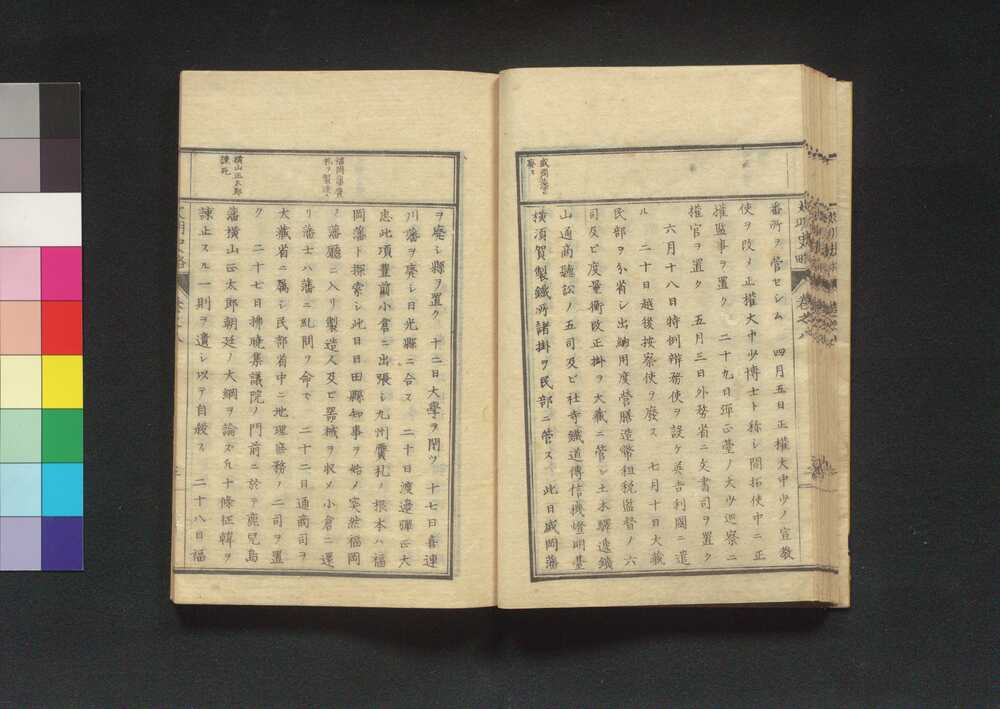 盛岡藩ヲ
廢ス
番所ヲ管セシム 四月五日正權大中少ノ宣教
使ヲ改メ正權大中少博士ト称シ開拓使中ニ正
權監事ヲ置ク 二十九日彈正臺ノ大少巡察ニ
權官ヲ置ク 五月三日外務省ニ文書司ヲ置ク
六月十八日特例辨務使ヲ設ケ英吉利國ニ遣
ル 二十日越後按察使ヲ廢ス 七月十日大藏
民部ヲ分省シ出納用度營膳造幣租税監督ノ六
司及ビ度量衡改正掛ヲ大藏ニ管シ土木驛逓鑛
山通商聽訟ノ五司及ビ社寺鐵道傳信機燈明臺
横須賀製鐵所諸掛ヲ民部ニ管ス 此日盛岡藩
福岡藩贋
札ヲ製造ス
横山正太郎
諫死
ヲ廢シ縣ヲ置ク 十二日大學ヲ閉ヅ 十七日喜連
川藩ヲ廢シ日光縣ニ合ス 二十日渡邉彈正大
忠此項豊前小倉ニ出張シ九州贋札ノ根本ハ福
岡藩ト探索シ此日日田縣知事ヲ始メ突然福岡
ノ藩廳ニ入リ製造人及ビ器械ヲ収メ小倉ニ還
リ藩士ハ藩ニ糺問ヲ命ズ 二十二日通商司ヲ
大藏省ニ屬シ民部省中ニ地理庶務ノ二司ヲ置
ク 二十七日拂曉集議院ノ門前ニ於テ鹿兒島
藩横山正太郎朝廷ノ大綱ヲ論ズル十條征韓ヲ
諫止スル一則ヲ遺シ以テ自殺ス 二十八日福